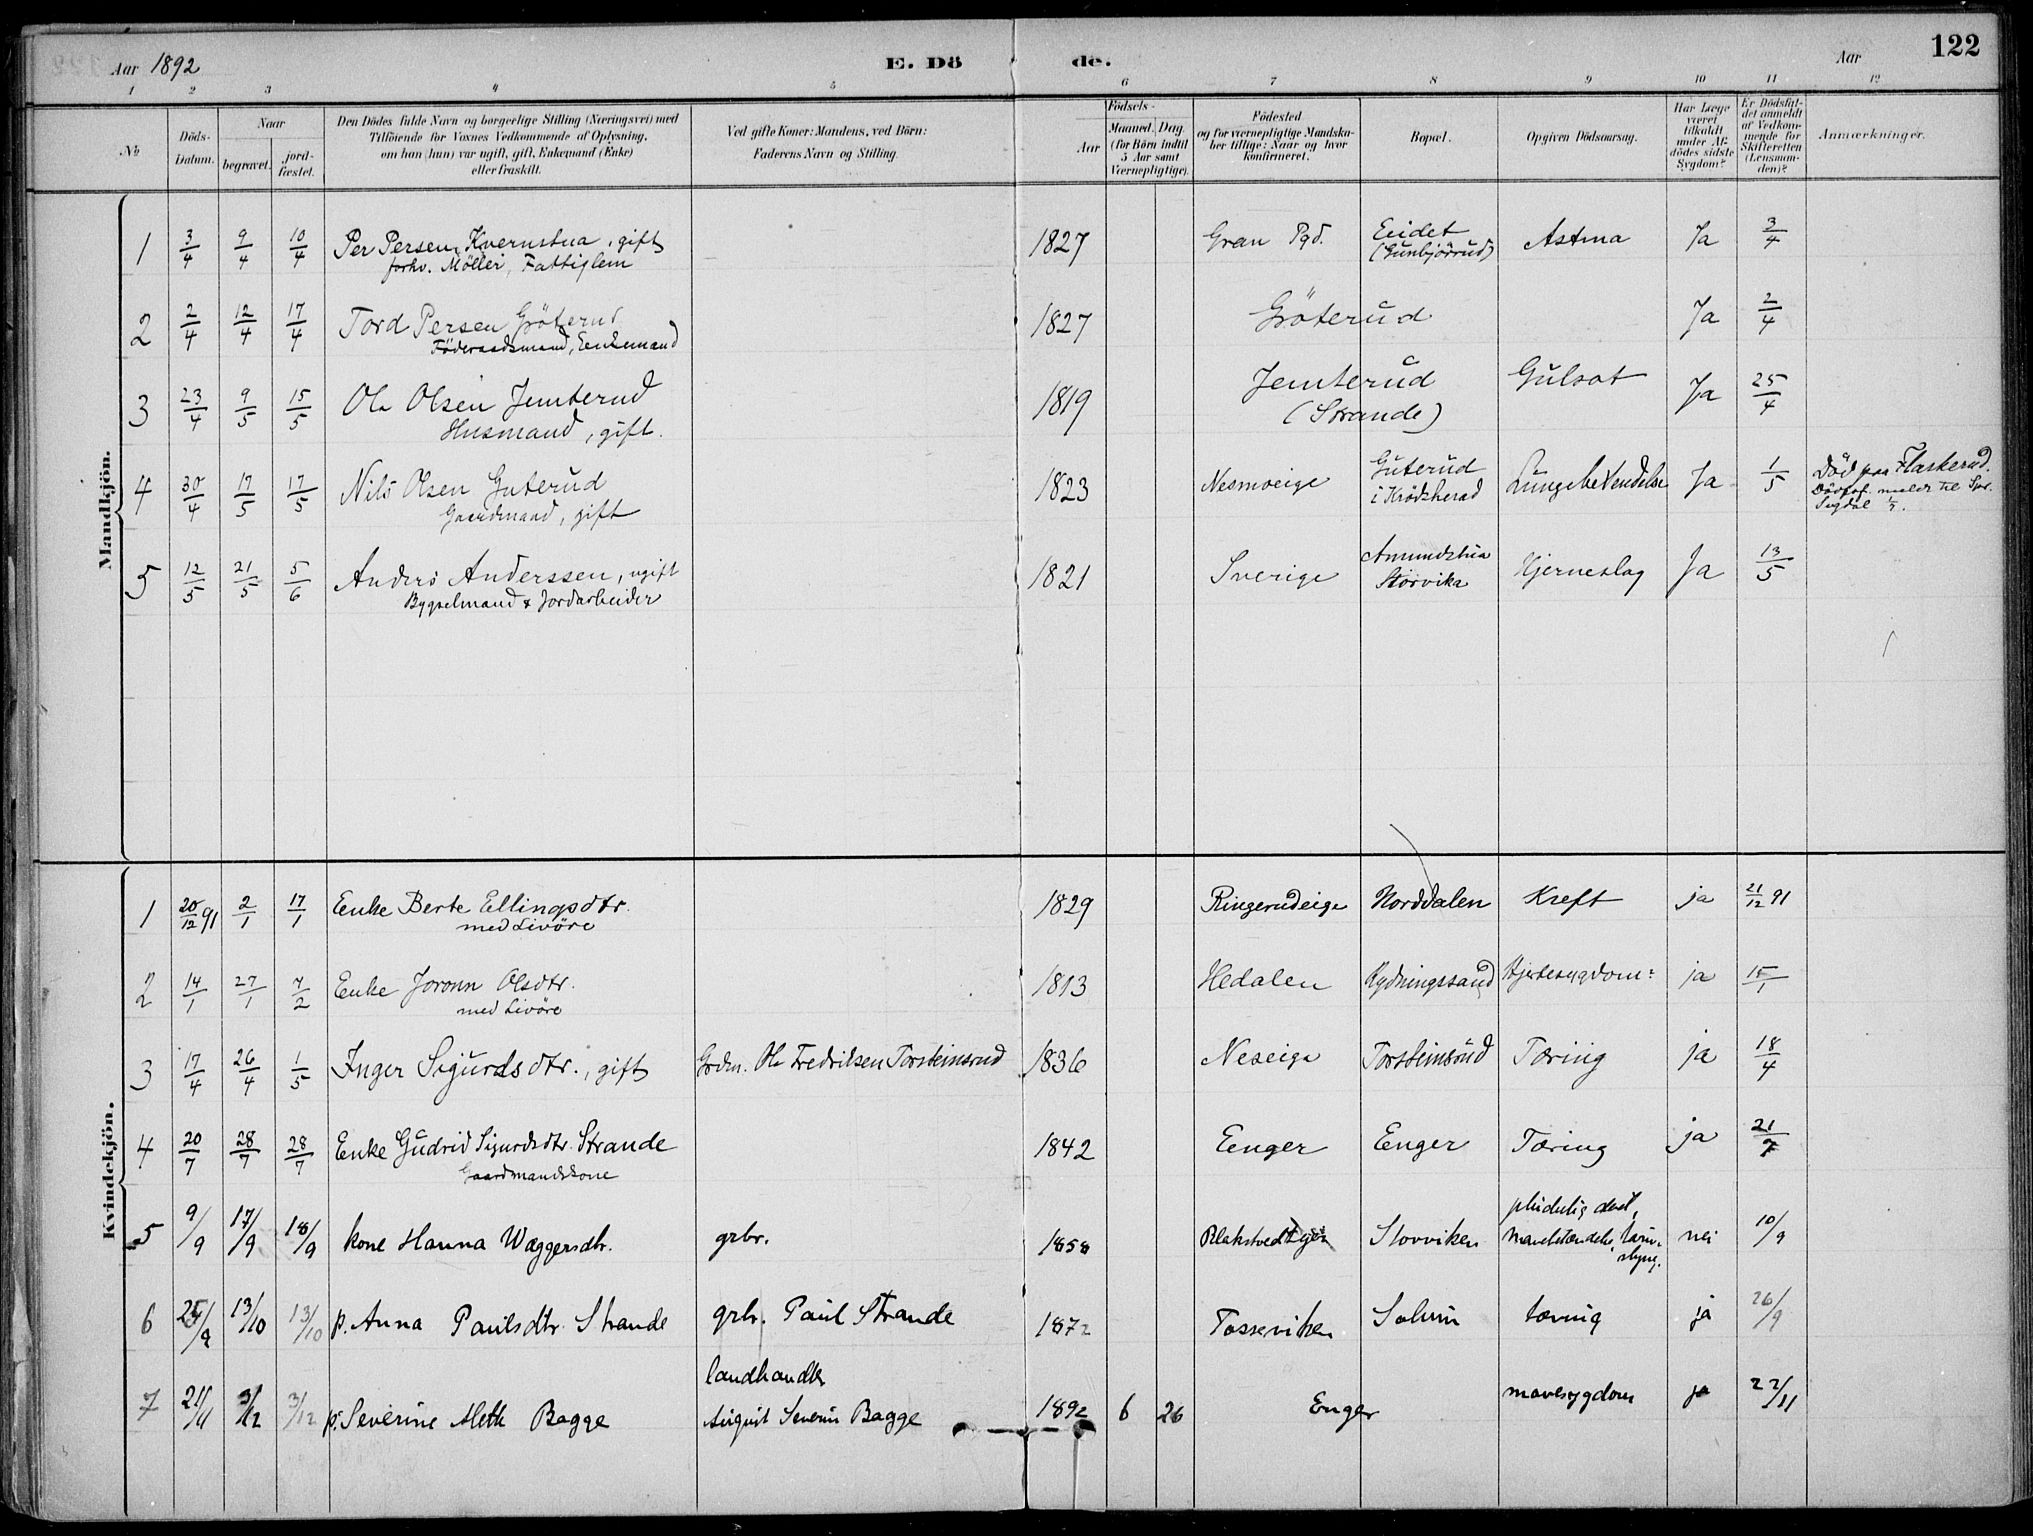 Aar 1892
E. Dö
de.
Aar
122
1 2 3 4 5 6 7 8 9 10 11 12
№
Döds-
Datum.
Naar
begravet.
jord-
fæstet.
Den Dödes fulde Navn og borgerlige Stilling (Næringsvei) med
Tilföiende for Voxnes Vedkommende af Oplysning,
om han (hun) var ugift, gift, Enkemand (Enke)
eller fraskilt.
Ved gifte Koner: Mandens, ved Börn:
Faderens Navn og Stilling.
Födsels-
Aar
Maaned. Dag.
(for Börn indtil
5 Aar samt
Værnepligtige).
Födested
og for værnepligtige Mandska-
ber tillige: Naar og hvor
konfirmeret.
Bopæl.
Opgiven Dödsaarsag.
Har Læge
været
tilkaldt
under Af-
dödes sidste
Sygdom?
Er Dödsfal-
det anmeldt
af Vedkom-
mende for
Skifteretten
(Lensman-
den)?
Anmærkninger.
Mandkjön.
1 3/4 9/4 10/4 Per Persen Kvernstua, gift 1827 Gran Pgd. Eidet Astma Ja 3/4
forhv. Möller, Fattiglem (Gunbjörrud)
2 2/4 12/4 17/4 Tord Persen Gröterud 1827 Gröterud Ja 2/4
Föderaadsmand, Enkemand
3 23/4 9/5 15/5 Ola Olsen Jemterud 1819 Jemterud Gulsot Ja 25/4
Husmand, gift. (Strande)
4 30/4 17/5 17/5 Nils Olsen Guterud 1823 Nesmoeige Guterud Lungebetendelse Ja 1/5 Död paa Flaskerud.
Gaardmand, gift i Krödsherad Dödsf. meldt til
Sigdal
5 12/5 21/5 5/6 Anders Anderssen, ugift 1821 Sverige Amundstua Hjerneslag Ja 13/5
Bygselmand & Jordarbeider Storvika
Kvindekjön.
1 20/12 91 2/1 17/1 Enke Berte Ellingsdtr. 1829 Ringerudeige Norddalen Kreft ja 21/12 91
med Livöre
2 14/1 27/1 7/2 Enke Joronn Olsdtr. 1813 Hedalen Rydningssand Hjertesygdom ja 15/1
med Livöre
3 17/4 26/4 1/5 Inger Sigurdsdtr., gift Grdm. Ola Fredriksen Torsteinsrud 1836 Neseige Torsteinsrud Tæring ja 18/4
4 20/7 28/7 28/7 Enke Gudrid Sigurdsdtr. Strande 1842 Eenger Enger Tæring ja 21/7
Gaardmandskone
5 9/9 17/9 18/9 kone Hanna Wæggersdtr. grbr. 1858 Blakstvedt Storviken pludselig död, nei 10/9
6 25/9 13/10 13/10 p. Anna Paulsdtr. Strande grbr. Paul Strande 1872 Tosseviken Solum tæring ja 26/9
7 21/11 3/12 3/12 p. Severine Meth Bagge landhandler 1892 6 26 Enger mavesygdom ja 22/11
August Severin Bagge